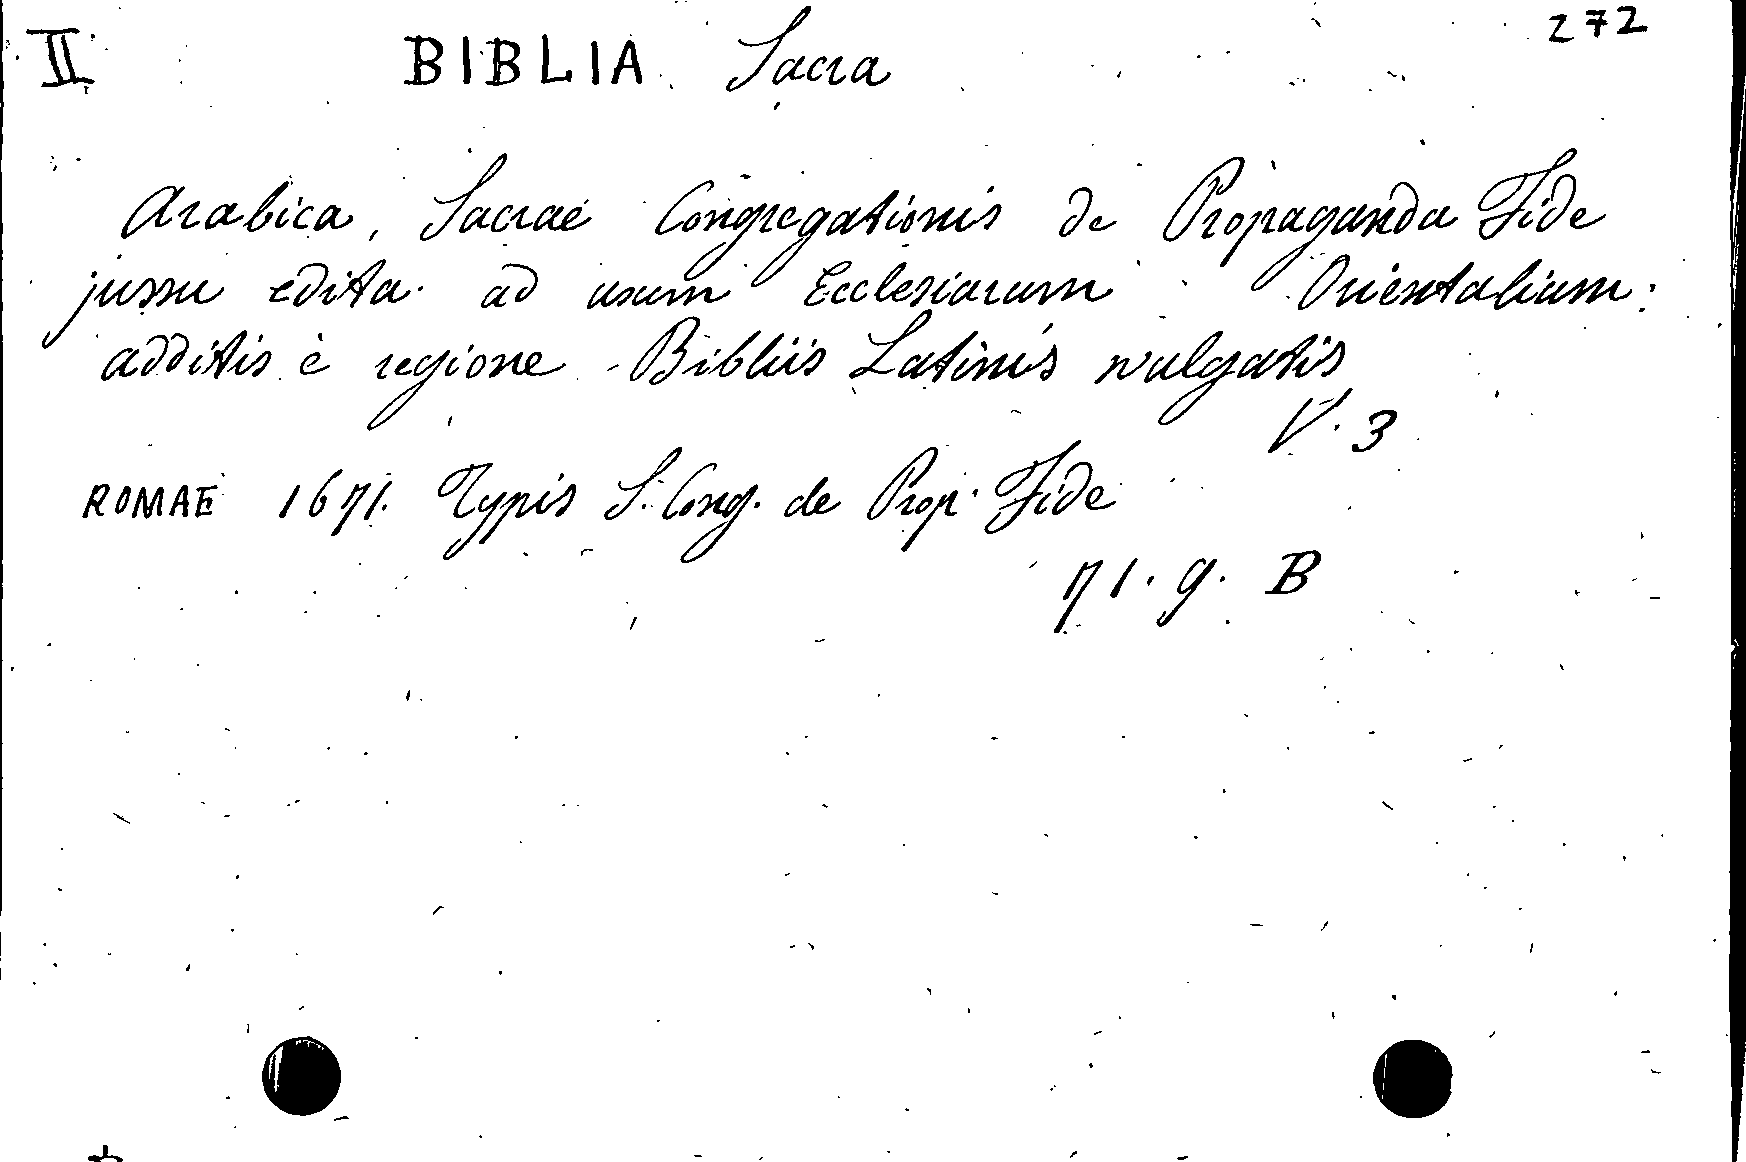 II BIBLIA Sacra 272
Arabica, Sacrae Congregationis de Propaganda Fide
jussu edita ad usum Ecclesiarum Orientalium:
additis è regione Bibliis Latinis vulgatis
V. 3
ROMAE 1671. Typis S. Cong. de Prop. Fide
71. g. B